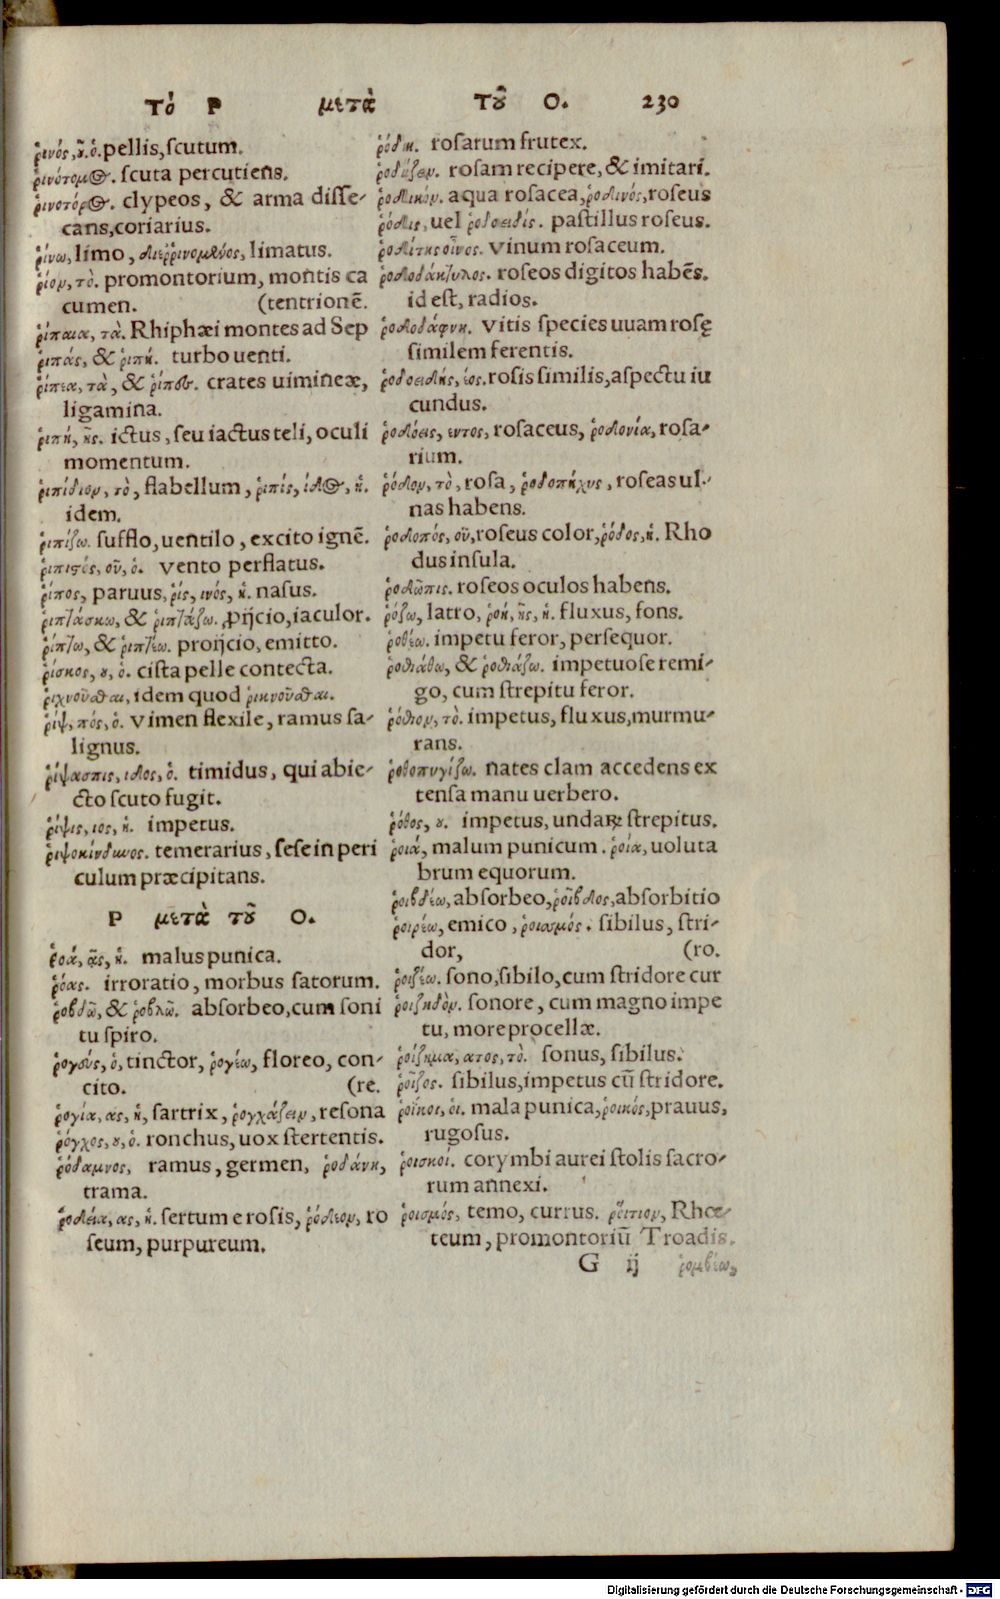 Τὸ Ρ μετὰ τοῦ Ο. 230
ῥινός, οῦ. ὁ. pellis, scutum.
ῥινότομος. scuta percutiens.
ῥινοτόρος. clypeos, & arma disse-
cans, coriarius.
ῥίνω, limo, διεῤῥινομένος, limatus.
ῥίον, τὸ. promontorium, montis ca
cumen. (tentrionē.
ῥίπαια, τὰ. Rhiphæi montes ad Sep
ῥιπάς, & ῥιπή. turbo uenti.
ῥίπεα, τὰ, & ῥίποι. crates uimineæ,
ligamina.
ῥιπή, ῆς. ictus, seu iactus teli, oculi
momentum.
ῥιπίδιον, τὸ, flabellum, ῥιπίς, ίδος, ἡ.
idem.
ῥιπίζω. sufflo, uentilo, excito ignē.
ῥιπιστός, οῦ, ὁ. vento perflatus.
ῥίπος, paruus, ῥίς, ινός, ἡ. nasus.
ῥιπτάσκω, & ῥιπτάζω. ꝓijcio, iaculor.
ῥίπτω, & ῥιπτέω. proijcio, emitto.
ῥίσκος, ου, ὁ. cista pelle contecta.
ῥιχνοῦσθαι, idem quod ῥικνοῦσθαι.
ῥίψ, πός, ὁ. vimen flexile, ramus sa-
lignus.
ῥίψασπις, ιδος, ὁ. timidus, qui abie-
cto scuto fugit.
ῥίψις, ιος, ἡ. impetus.
ῥιψοκίνδυνος. temerarius, sese in peri
culum præcipitans.
Ρ μετὰ τοῦ Ο.
ῥοά, ᾶς, ἡ. malus punica.
ῥόας. irroratio, morbus satorum.
ῥοβδῶ, & ῥοβλῶ. absorbeo, cum soni
tu spiro.
ῥογούς, ὁ, tinctor, ῥογέω, floreo, con-
cito. (re.
ῥογία, ας, ἡ, sartrix, ῥογχάζειν, resona
ῥόγχος, ου, ὁ. ronchus, uox stertentis.
ῥόδαμνος, ramus, germen, ῥοδάνη,
trama.
ῥοδέια, ας, ἡ. sertum e rosis, ῥόδεον, ro
seum, purpureum.
ῥόδη. rosarum frutex.
ῥοδίζειν. rosam recipere, & imitari.
ῥοδικόν. aqua rosacea, ῥοδινός, roseus
ῥόδις, uel ῥοδοειδίς. pastillus roseus.
ῥοδίτης οἶνος. vinum rosaceum.
ῥοδοδάκτυλος. roseos digitos habēs.
id est, radios.
ῥοδοδάφνη. vitis species uuam rosę
similem ferentis.
ῥοδοειδής, έος. rosis similis, aspectu iu
cundus.
ῥοδόεις, εντος, rosaceus, ῥοδονία, rosa-
rium.
ῥόδον, τὸ, rosa, ῥοδοπήχυς, roseas ul-
nas habens.
ῥοδοπός, οῦ, roseus color, ῥόδος, ἡ. Rho
dus insula.
ῥοδῶπις. roseos oculos habens.
ῥόζω, latro, ῥοή, ῆς, ἡ. fluxus, fons.
ῥοθέω. impetu feror, persequor.
ῥοθιάθω, & ῥοθιάζω. impetuose remi-
go, cum strepitu feror.
ῥόθιον, τὸ. impetus, fluxus, murmu-
rans.
ῥοθοπυγίζω. nates clam accedens ex
tensa manu uerbero.
ῥόθος, ου. impetus, undaꝝ strepitus.
ῥοιά, malum punicum. ῥοία, uoluta
brum equorum.
ῥοιβδέω, absorbeo, ῥοῖβδος, absorbitio
ῥοιρέω, emico, ῥοισμός. sibilus, stri-
dor, (ro.
ῥοιζέω. sono, sibilo, cum stridore cur
ῥοιζηδὸν. sonore, cum magno impe
tu, more procellæ.
ῥοίζημα, ατος, τὸ. sonus, sibilus.
ῥοῖζος. sibilus, impetus cū stridore.
ῥοίκοι, οἱ. mala punica, ῥοικός, prauus,
rugosus.
ῥοισκοί. corymbi aurei stolis sacro-
rum annexi.
ῥοισμός, temo, currus. ῥοίτιον, Rhœ-
teum, promontoriū Troadis.
G ij ῥομβέω,
Digitalisierung gefördert durch die Deutsche Forschungsgemeinschaft - DFG